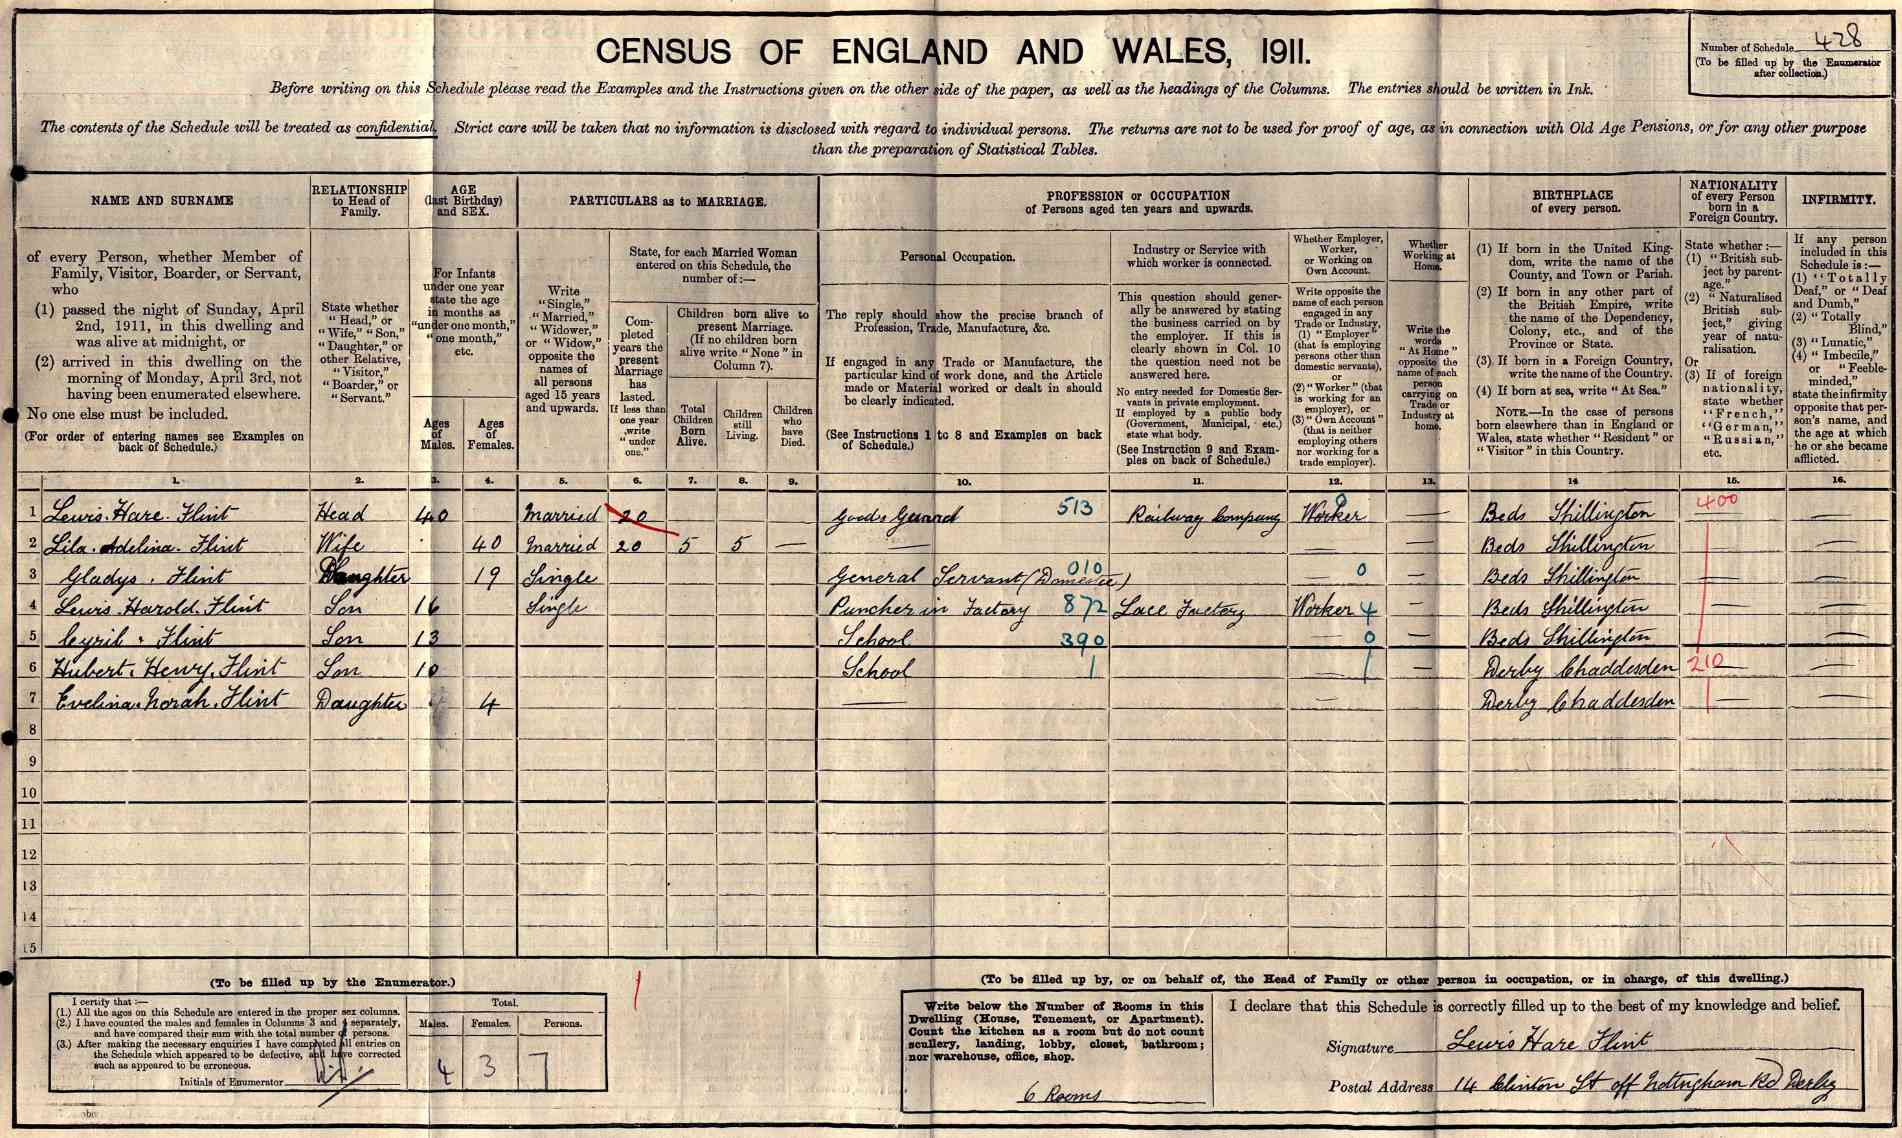 CENSUS OF ENGLAND AND WALES, 1911.
Number of Schedule 428
(To be filled up by the Enumerator
after collection.)
Before writing on this Schedule please read the Examples and the Instructions given on the other side of the paper, as well as the headings of the Columns. The entries should be written in Ink.
The contents of the Schedule will be treated as confidential. Strict care will be taken that no information is disclosed with regard to individual persons. The returns are not to be used for proof of age, as in connection with Old Age Pensions, or for any other purpose
than the preparation of Statistical Tables.
NAME AND SURNAME
RELATIONSHIP
to Head of
Family.
AGE
(last Birthday)
and SEX.
PARTICULARS as to MARRIAGE.
PROFESSION or OCCUPATION
of Persons aged ten years and upwards.
BIRTHPLACE
of every person.
NATIONALITY
of every Person
born in a
Foreign Country.
INFIRMITY.
of every Person, whether Member of
Family, Visitor, Boarder, or Servant,
who
(1) passed the night of Sunday, April
2nd, 1911, in this dwelling and
was alive at midnight, or
(2) arrived in this dwelling on the
morning of Monday, April 3rd, not
having been enumerated elsewhere.
No one else must be included.
(For order of entering names see Examples on
back of Schedule.)
State whether
"Head," or
"Wife," "Son,"
"Daughter," or
other Relative,
"Visitor,"
"Boarder," or
"Servant."
For Infants
under one year
state the age
in months as
"under one month,"
"one month,"
etc.
Ages
of
Males.
Ages
of
Females.
Write
"Single,"
"Married,"
"Widower,"
or "Widow,"
opposite the
names of
all persons
aged 15 years
and upwards.
State, for each Married Woman
entered on this Schedule, the
number of:—
Com-
pleted
years the
present
Marriage
has
lasted.
If less than
one year
write
"under
one."
Children born alive to
present Marriage.
(If no children born
alive write "None" in
Column 7).
Total
Children
Born
Alive.
Children
still
Living.
Children
who
have
Died.
Personal Occupation.
The reply should show the precise branch of
Profession, Trade, Manufacture, &c.
If engaged in any Trade or Manufacture, the
particular kind of work done, and the Article
made or Material worked or dealt in should
be clearly indicated.
(See Instructions 1 to 8 and Examples on back
of Schedule.)
Industry or Service with
which worker is connected.
This question should gener-
ally be answered by stating
the business carried on by
the employer. If this is
clearly shown in Col. 10
the question need not be
answered here.
No entry needed for Domestic Ser-
vants in private employment.
If employed by a public body
(Government, Municipal, etc.)
state what body.
(See Instruction 9 and Exam-
ples on back of Schedule.)
Whether Employer,
Worker,
or Working on
Own Account.
Write opposite the
name of each person
engaged in any
Trade or Industry,
(1) "Employer"
(that is employing
persons other than
domestic servants),
or
(2) "Worker" (that
is working for an
employer), or
(3) "Own Account"
(that is neither
employing others
nor working for a
trade employer).
Whether
Working at
Home.
Write the
words
"At Home"
opposite the
name of each
person
carrying on
Trade or
Industry at
home.
(1) If born in the United King-
dom, write the name of the
County, and Town or Parish.
(2) If born in any other part of
the British Empire, write
the name of the Dependency,
Colony, etc., and of the
Province or State.
(3) If born in a Foreign Country,
write the name of the Country.
(4) If born at sea, write "At Sea."
NOTE.—In the case of persons
born elsewhere than in England or
Wales, state whether "Resident" or
"Visitor" in this Country.
State whether:—
(1) "British sub-
ject by parent-
age."
(2) "Naturalised
British sub-
ject," giving
year of natu-
ralisation.
Or
(3) If of foreign
nationality,
state whether
"French,"
"German,"
"Russian,"
etc.
If any person
included in this
Schedule is:—
(1) "Totally
Deaf," or "Deaf
and Dumb,"
(2) "Totally
Blind,"
(3) "Lunatic,"
(4) "Imbecile,"
or "Feeble-
minded,"
state the infirmity
opposite that per-
son's name, and
the age at which
he or she became
afflicted.
1. 2. 3. 4. 5. 6. 7. 8. 9. 10. 11. 12. 13. 14 15. 16.
1 Lewis Hare Flint Head 40 Married 20 Goods Guard 513 Railway Company Worker 0 — Beds Shillington 400
2 Lila Adelina Flint Wife 40 Married 20 5 5 — — — — Beds Shillington — —
3 Gladys Flint Daughter 19 Single General Servant (Domestic) 010 — 0 — Beds Shillington — —
4 Lewis Harold Flint Son 16 Single Puncher in Factory 872 Lace Factory Worker 4 — Beds Shillington — —
5 Cyril Flint Son 13 School 390 — 0 — Beds Shillington — —
6 Hubert Henry Flint Son 10 School 1 — 1 — Derby Chaddesden 210 — —
7 Evelina Norah Flint Daughter 4 — — Derby Chaddesden — —
8
9
10
11
12
13
14
15
(To be filled up by the Enumerator.)
I certify that:—
(1.) All the ages on this Schedule are entered in the proper sex columns.
(2.) I have counted the males and females in Columns 3 and 4 separately,
and have compared their sum with the total number of persons.
(3.) After making the necessary enquiries I have completed all entries on
the Schedule which appeared to be defective, and have corrected
such as appeared to be erroneous.
Initials of Enumerator
Total.
Males. Females. Persons.
4 3 7
(To be filled up by, or on behalf of, the Head of Family or other person in occupation, or in charge, of this dwelling.)
Write below the Number of Rooms in this
Dwelling (House, Tenement, or Apartment).
Count the kitchen as a room but do not count
scullery, landing, lobby, closet, bathroom;
nor warehouse, office, shop.
6 Rooms
I declare that this Schedule is correctly filled up to the best of my knowledge and belief.
Signature Lewis Hare Flint
Postal Address 14 Clinton St off Nottingham Rd Derby